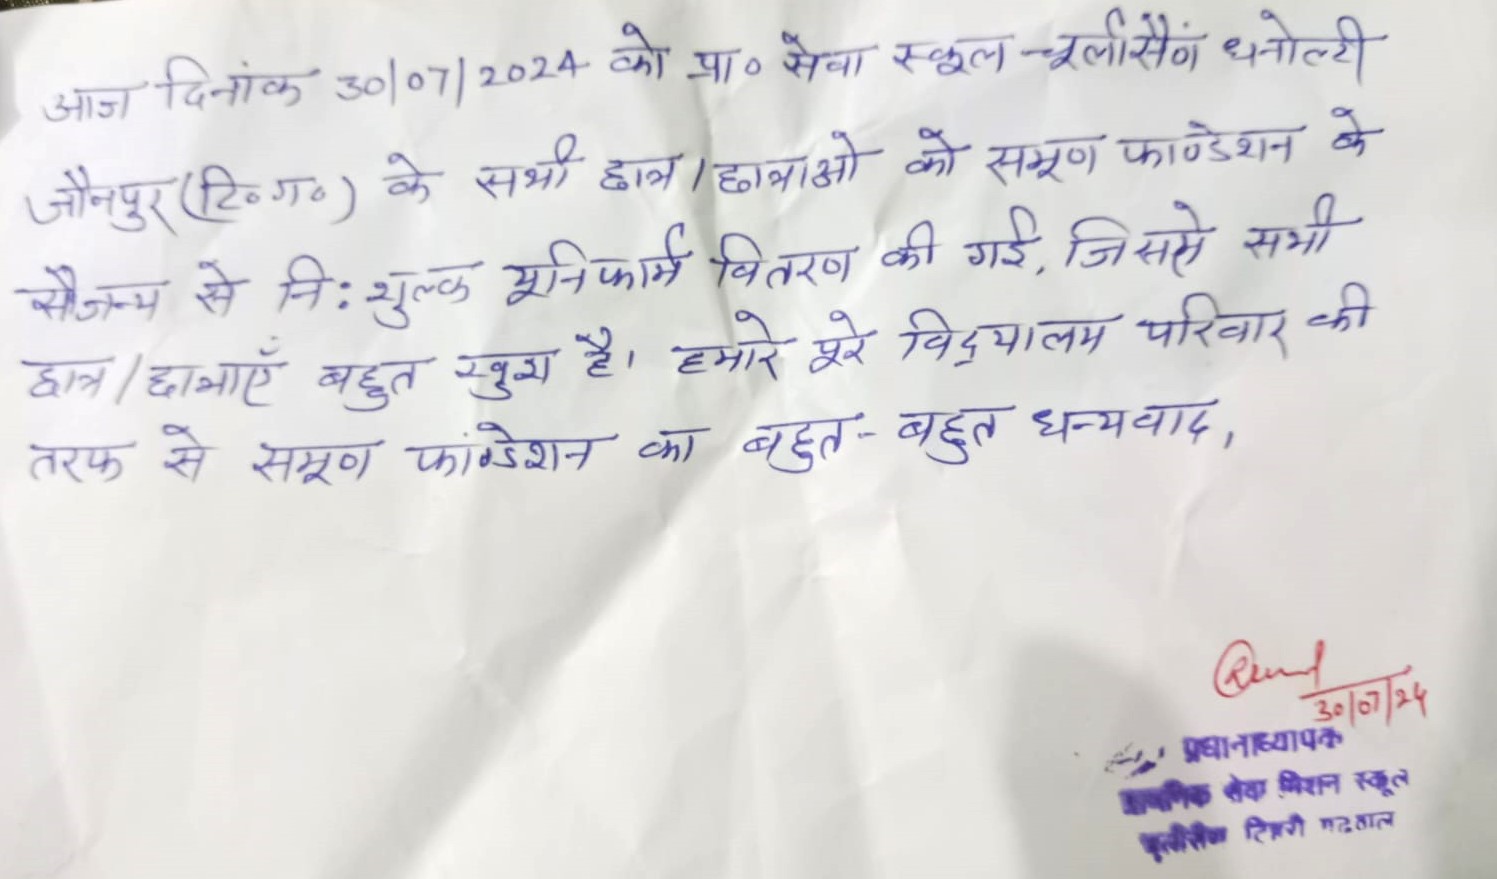 आज दिनांक 30/07/2024 को प्रा० सेवा स्कूल चूलीसैंण धनोल्टी
जौनपुर (टि० ग०) के सभी छात्र / छात्राओ को समूण फाण्डेशन के
सौजन्य से नि:शुल्क यूनिफार्म वितरण की गई, जिससे सभी
छात्र / छात्राएँ बहुत खुश है। हमारे पूरे विद्यालय परिवार की
तरफ से समूण फांण्डेशन का बहुत - बहुत धन्यवाद,
30/07/24
प्रधानाध्यापक
सेवा मिशन स्कूल
टिहरी गढवाल